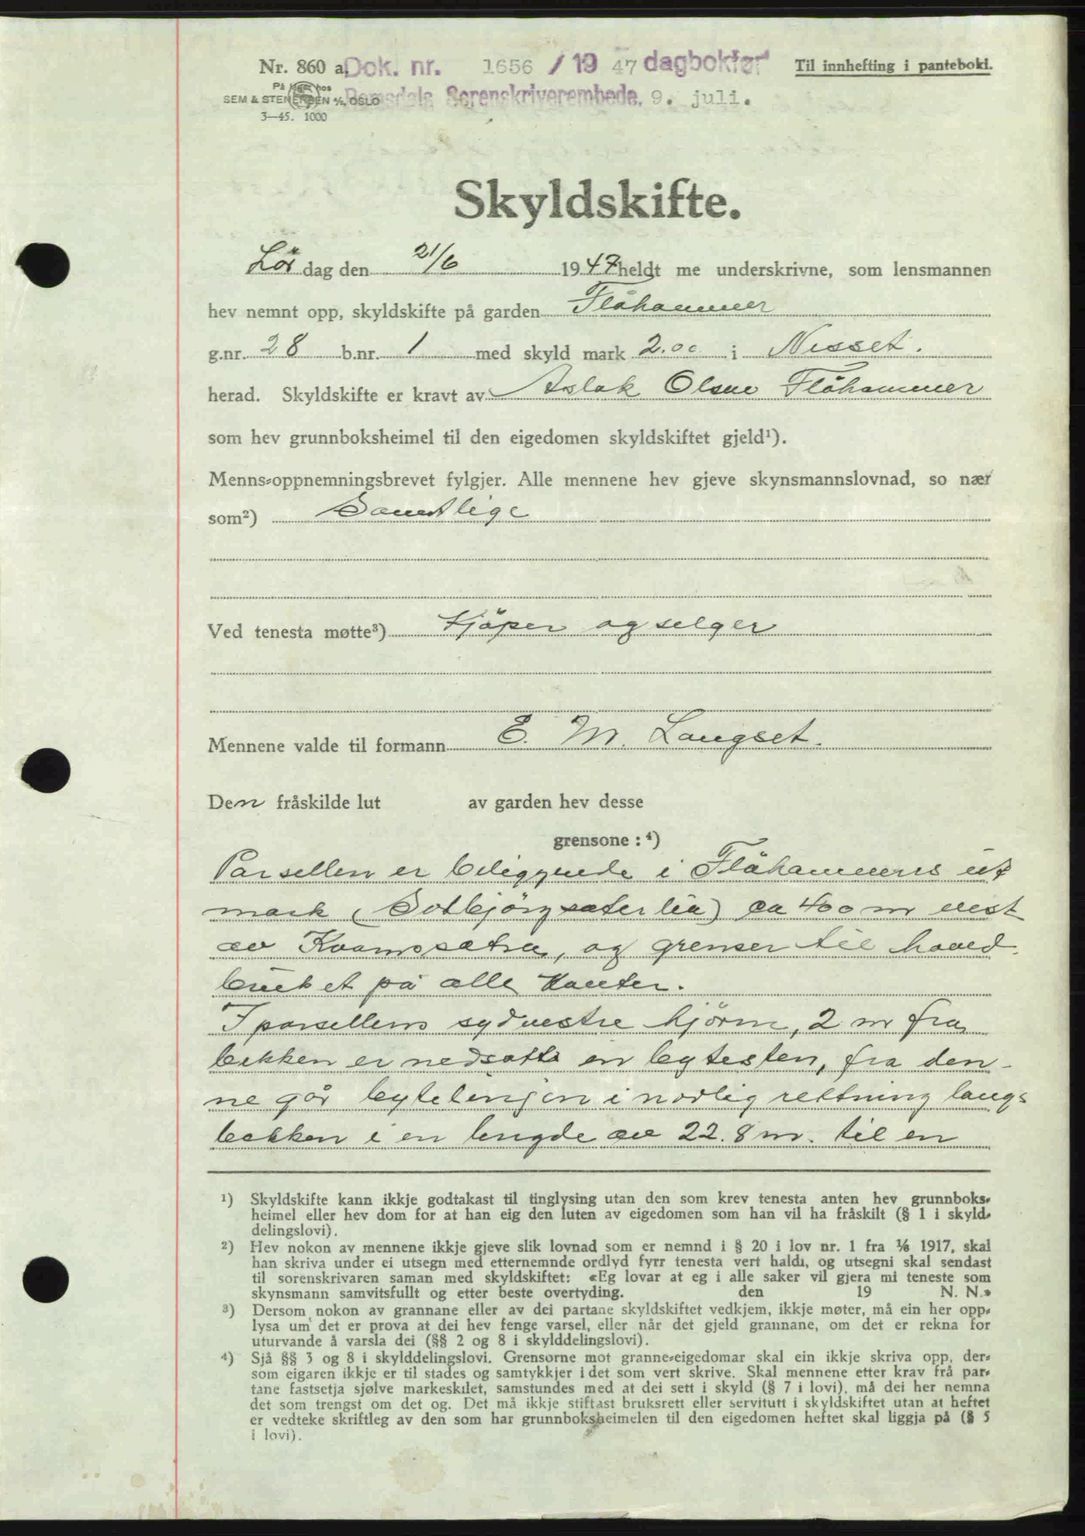 Nr. 860 a. Dok. nr. 1656 / 19 47 dagbokført Til innhefting i panteboki.
På lager hos
SEM & STENERSEN A/S, OSLO Romsdals Sorenskriverembede, 9. juli.
3—45. 1000
Skyldskifte.
Lör dag den 21/6 1947 heldt me underskrivne, som lensmannen
hev nemnt opp, skyldskifte på garden Flåhammer
g.nr. 28 b.nr. 1 med skyld mark 2.00 i Nesset.
herad. Skyldskifte er kravt av Aslak Olsen Flåhammer
som hev grunnboksheimel til den eigedomen skyldskiftet gjeld¹).
Menns-oppnemningsbrevet fylgjer. Alle mennene hev gjeve skynsmannslovnad, so nær
som²) Samtlige
Ved tenesta møtte³) Kjöper og selger
Mennene valde til formann E. M. Langset.
Den fråskilde lut av garden hev desse
grensone : ⁴)
Parsellen er beliggende i Flåhammers ut
mark (Solbjörgsæterlia) ca 400 m vest
av Kvamsætra, og grenser til hoved
bruket på alle kanter.
I parsellens sydvestre hjörne, 2 m fra
bekken er nedsatt en bytesten, fra den-
ne går bytelinjen i nordlig rettning langs
bekken i en lengde av 22.8 m. til en
¹) Skyldskifte kann ikkje godtakast til tinglysing utan den som krev tenesta anten hev grunnboks-
heimel eller hev dom for at han eig den luten av eigedomen som han vil ha fråskilt (§ 1 i skyld-
delingslovi).
²) Hev nokon av mennene ikkje gjeve slik lovnad som er nemnd i § 20 i lov nr. 1 fra ⅙ 1917, skal
han skriva under ei utsegn med etternemnde ordlyd fyrr tenesta vert haldi, og utsegni skal sendast
til sorenskrivaren saman med skyldskiftet: «Eg lovar at eg i alle saker vil gjera mi teneste som
skynsmann samvitsfullt og etter beste overtyding. den 19 N. N.»
³) Dersom nokon av grannane eller av dei partane skyldskiftet vedkjem, ikkje møter, må ein her opp-
lysa um det er prova at dei hev fenge varsel, eller når det gjeld grannane, om det er rekna for
uturvande å varsla dei (§§ 2 og 8 i skylddelingslovi).
⁴) Sjå §§ 3 og 8 i skylddelingslovi. Grensorne mot granne-eigedomar skal ein ikkje skriva opp, der-
som eigaren ikkje er til stades og samtykkjer i det som vert skrive. Skal mennene etter krav frå par-
tane fastsetja sjølve markeskilet, samstundes med at dei sett i skyld (§ 7 i lovi), må dei her nemna
det som trengst om det og. Det må ikkje stiftast bruksrett eller servitutt i skyldskiftet utan at heftet
er vedteke skriftleg av den som har grunnboksheimelen til den eigedomen heftet skal liggja på (§ 5
i lovi).